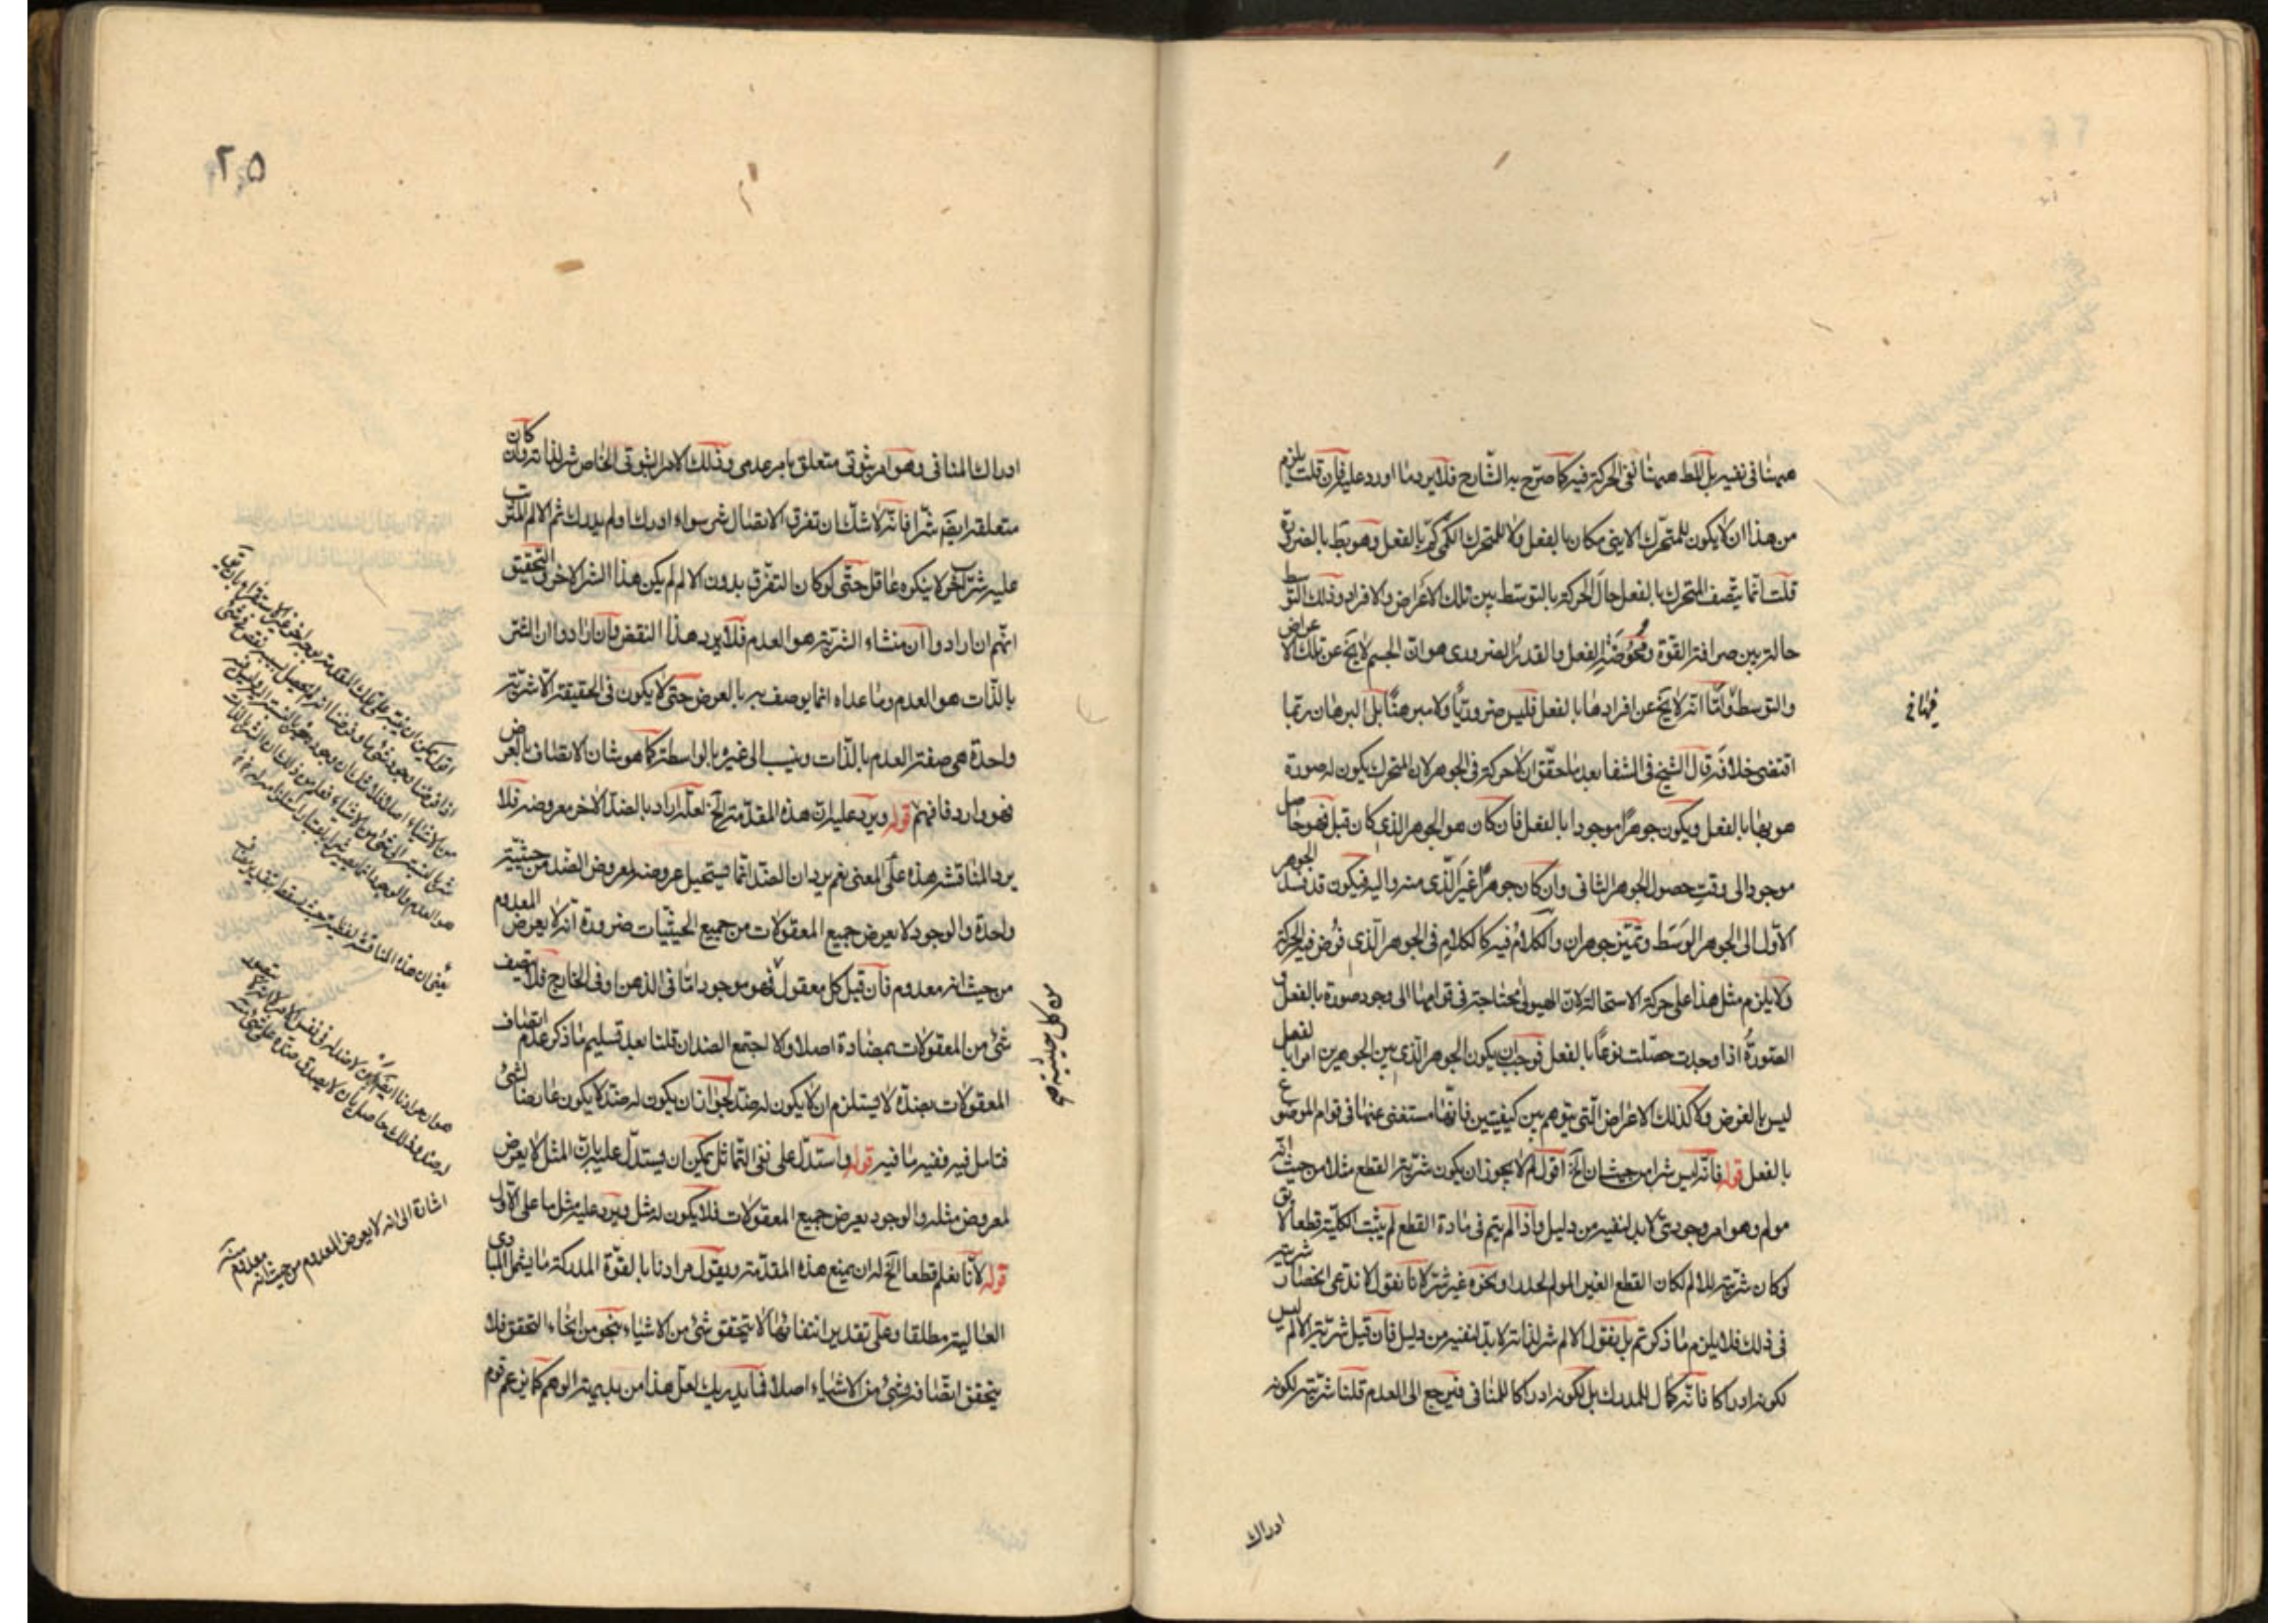 ههنا فى نفيه بل المط ههنا نفى الحركة فيه كما صرّح به الشّارح فلا يرد ما اورد عليه فان قلت يلزم
من هذا ان لا يكون للمتحرّك الاينى مكان بالفعل ولا للمتحرك الكمّى كمّ بالفعل وهو بط بالضرورة
قلت انما يتّصف المتحرك بالفعل حال الحركة بالتوسّط بين تلك الاعراض والافراد وذلك التوسط
حالة بين صرافة القوّة ومحُوضَة الفعل والقدر الضرورى هو انّ الجسم لا يخ عن تلك الاعراض
والتوسط وامّا انّه لا يخ عن افرادها بالفعل فليس ضروريّا ولا مبرهنًا بل البرهان ربّما
اقتضى خلافه قال الشيخ فى الشفا بعد ما حقّق ان لا حركة فى الجوهر لان المتحرك يكون له صورة
هو بها بالفعل ويكون جوهرًا موجودا بالفعل فان كان هو الجوهر الذى كان قبل فهو حاصل
موجود الى وقت حصول الجوهر الثانى وان كان جوهرًا غير الّذى منه واليه فيكون قد فسد الجوهر
الاوّل الى الجوهر الوَسَط وتميّز جوهران والكلام فيه كالكلام فى الجوهر الّذى فُرض فيه الحركة
ولا يلزم مثل هذا على حركة الاستحالة لان الهيولى محتاجة فى قوامها الى وجود صورة بالفعل و
الصّورةُ اذا وجدت حصّلت نوعًا بالفعل فوجب ان يكون الجوهر الّذى بين الجوهرين امرا بالفعل
ليس بالفرض ولا كذلك الاعراض الّتى يتوهم بين كيفيتين فانّها مستغنى عنها فى قوام الموضوع
بالفعل قوله فانّه ليس شرا من حيث ان الخ اقول لم لا يجوز ان يكون شريّة القطع مثلا من حيث انّه
مولم وهو امر وجودىّ لا بد لنفيه من دليل واذا لم يتم فى مادة القطع لم يثبت الكليّة قطعا لا يق
لو كان شريّته للالم لكان القطع الغير المولم لحدد او نحوه غير شر لانا نقول لا ندّعى انحصار شريّته
فى ذلك فلا يلزم ما ذكرتم بل نقول الالم شر لذاته لا بدّ لنفيه من دليل فان قيل شريّة الالم ليس
لكونه ادراكا فانّه كمال للمدرك بل لكونه ادراكا للمنافى فيرجع الى العدم قلنا شريّته لكونه
ادراك
٢٥
ادراك المنافى وهو امر ثبوتى متعلق بامر عدمى وذلك الامر الثبوتى الخاص شر لذاته وان كان
متعلقه ايضا شرّا فانّه لا شكّ ان تفرق الاتصال شر سواء ادرك او لم يدرك ثم الالم المترتب
عليه شرّ اخر لا ينكره عاقل حتّى لو كان التفرّق بدون الالم لم يكن هذا الشر الاخر والتحقيق
انهم ان ارادوا ان منشاء الشريّة هو العدم فلا يرد هذا النقض وان ارادوا ان الشر
بالذّات هو العدم وما عداه انما يوصف به بالعرض حتى لا يكون فى الحقيقة الّا شريّة
واحدة هى صفة العدم بالذّات وينسب الى غيره بالواسطة كما هو شان الاتصاف بالعرض
فهو وارد فافهم قوله ويرد عليه ان هذه المقدّمة الخ لعلّه اراد بالضدّ الاخر معروضه فلا
يرد المناقشة هذه على المعنى نعم يرد ان الضدّ انّما يستحيل عروضه لمعروض الضد من حيثيّة
واحدة والوجود لا يعرض جميع المعقولات من جميع الحيثيّات ضرورة انّه لا يعرض المعدوم
من حيث انه معدوم فان قيل كل معقول فهو موجود امّا فى الذهن او فى الخارج فلا يتصف
شئ من المعقولات بمضادة اصلا والا اجتمع الضدان قلنا بعد تسليم ما ذكر عدم اتصاف
المعقولات بضدّه لا يستلزم ان لا يكون له ضدّ لجواز ان يكون له ضدّ لا يكون عارضا لشئ
فتامل فيه ففيه ما فيه قوله واستدلّ على نفى التّماثل يمكن ان يستدلّ عليه بانّ المثل لا يعرض
لمعروض مثله والوجود يعرض جميع المعقولات فلا يكون له مثل ويرد عليه مثل ما على الاوّل
قوله لانّا نعلم قطعا الخ له ان يمنع هذه المقدّمة ويقول مرادنا بالقوّة المدركة ما يشمل المبادى
العالية مطلقا وعلى تقدير انتفائها لا يتحقق شئ من الاشياء بنحو من انحاء التحقق فلا
يتحقق اتّصافه بشئ من الاشياء اصلا فما يدريك لعل هذا من بديهة الوهم كما يزعم قوم
اشارة الى انه لا يعرض المعدوم من حيث انه معدوم منه